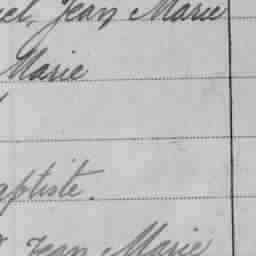 el, Jean Marie
Marie
aptiste.
Jean Marie